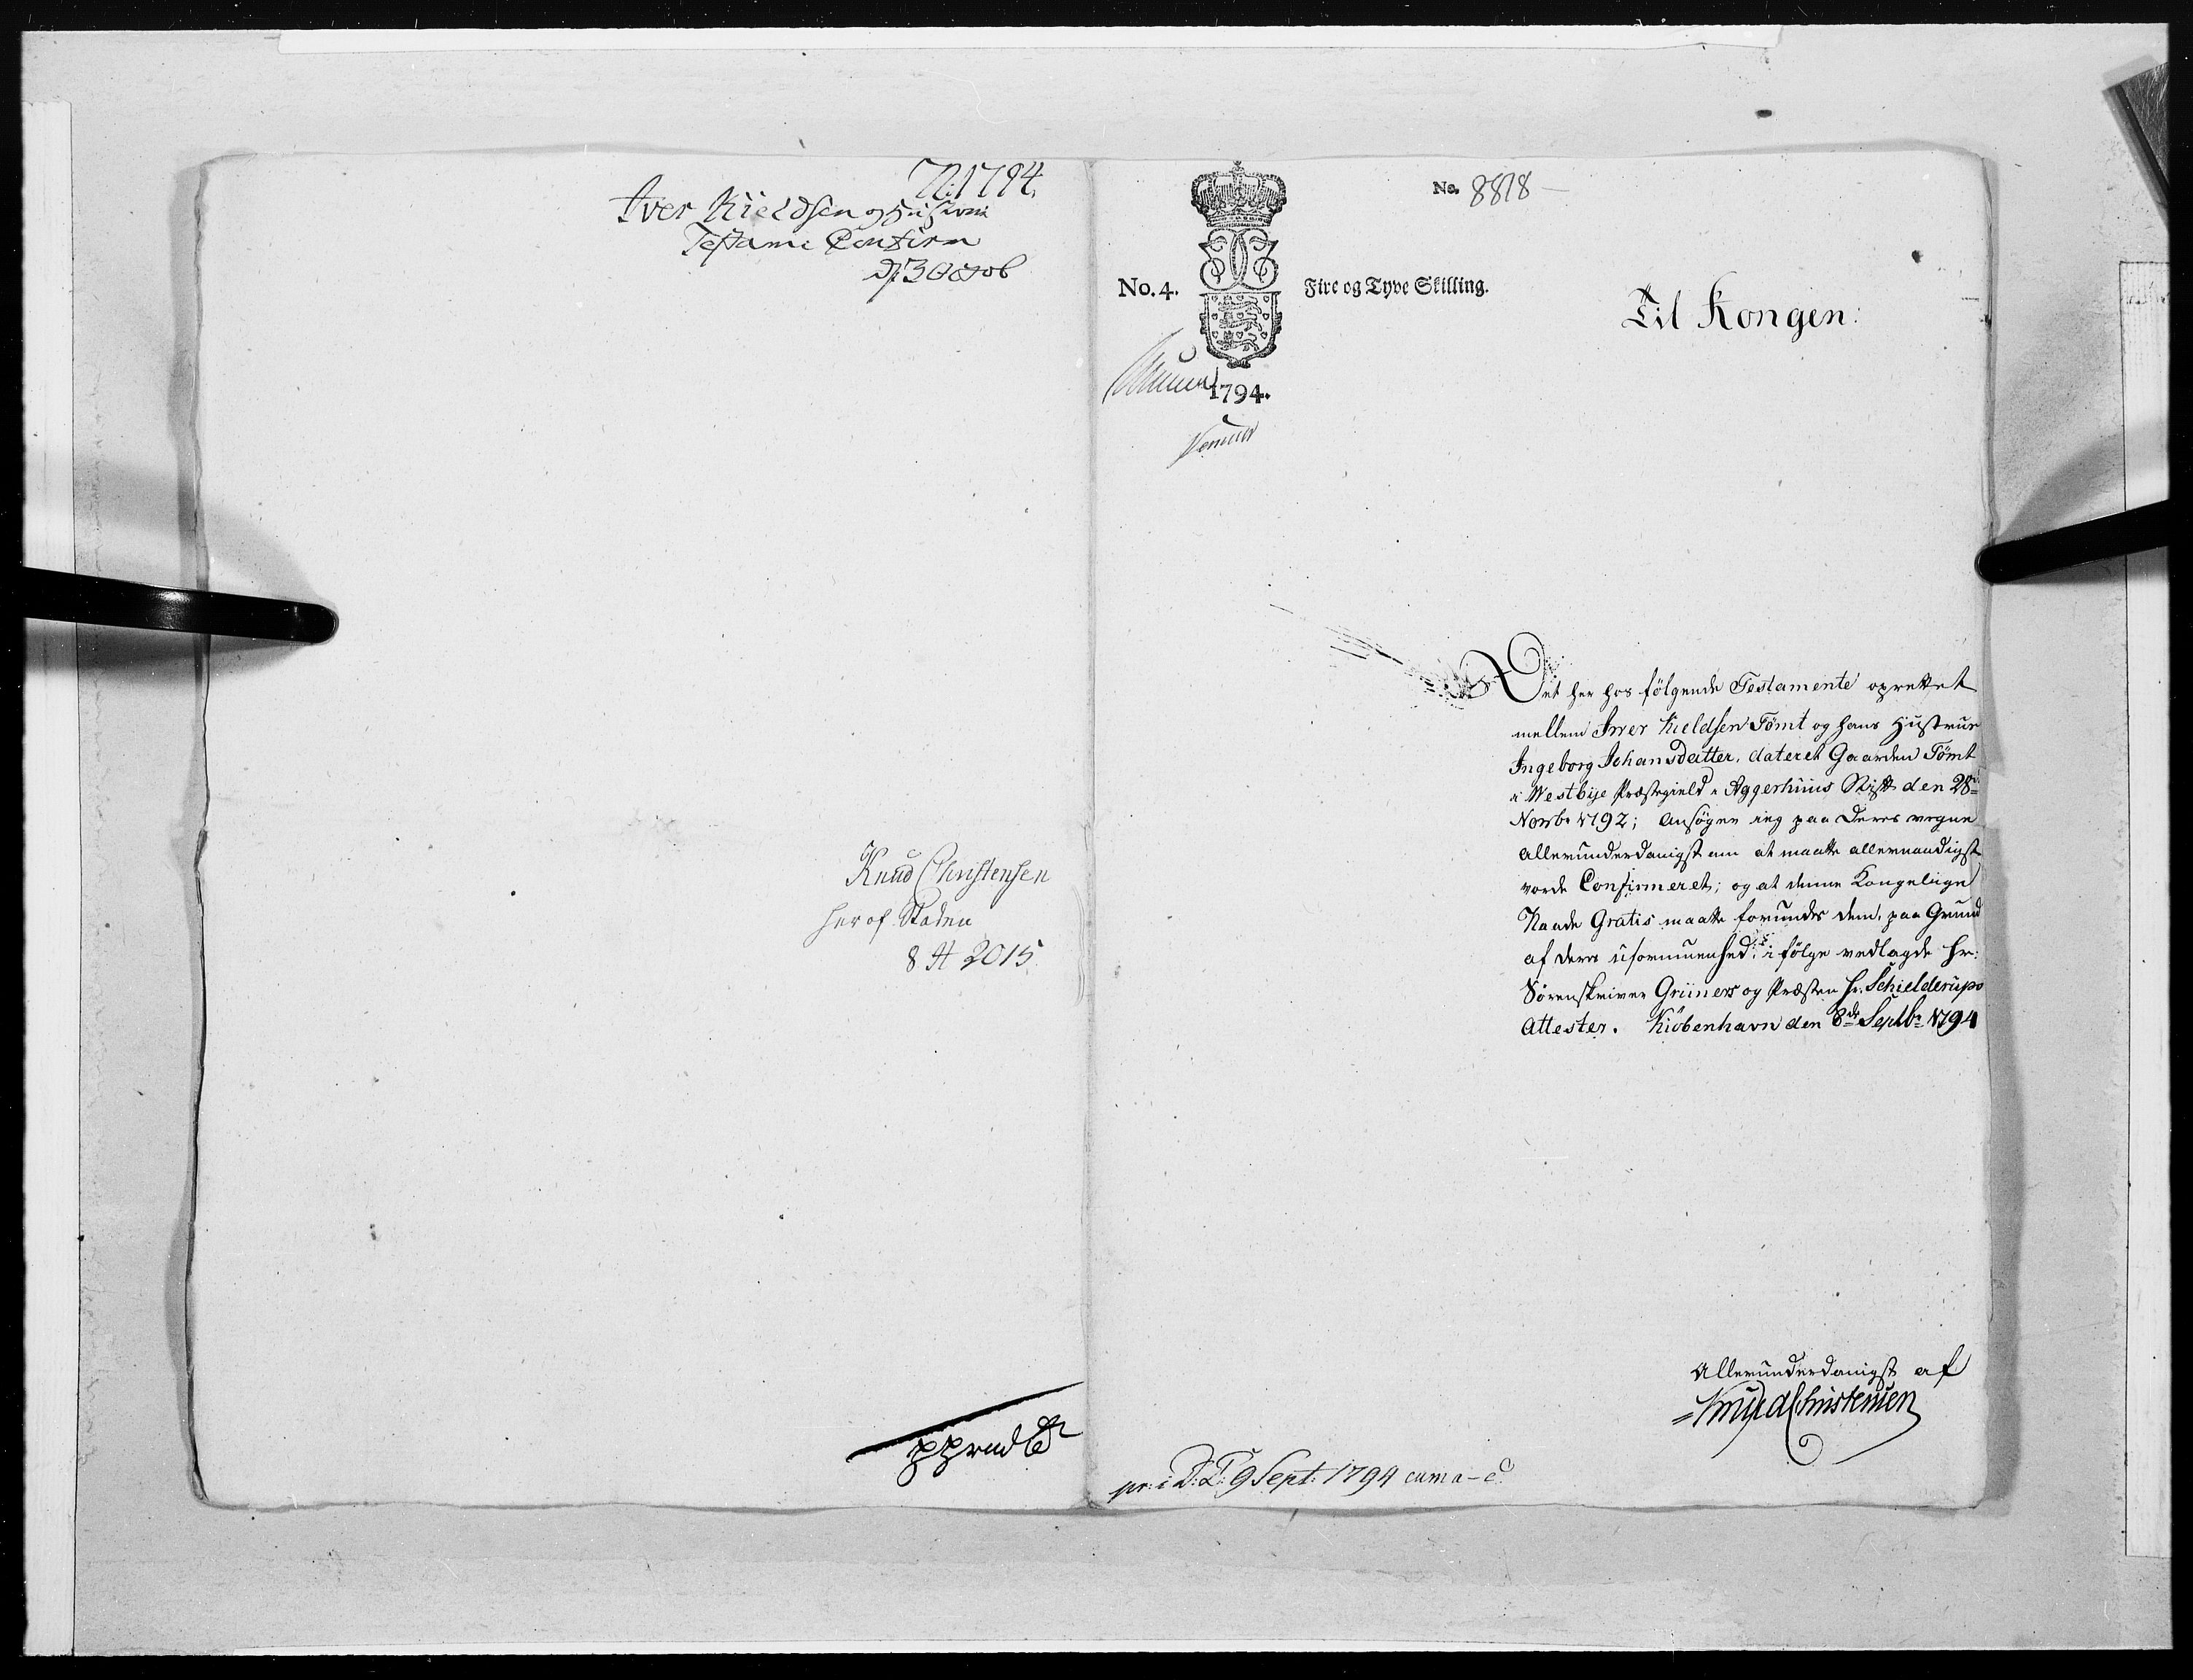 N: 1794.
Iver Kieldsen og Hustrues
Testame Confirm
d/ 3 Octob
Knud Christensen
her af Staden
8 A 2015
No. 8818
No. 4.
Fire og Tyve Skilling.
1794.
Til Kongen:
Det her hos fölgende Testamente oprettet
mellem Iwer Kieldsen Tömt og hans Hustrue
Ingeborg Johansdatter, dateret Gaarden Tömt
i Westbye Præstegield i Aggerhuus Stift den 28de
Novbr 1792; ansøger ieg paa Deres vegne
allerunderdanigst om at maatte allernaadigst
vorde Confirmeret; og at denne Kongelige
Naade Gratis maatte forundes dem, paa Grund
af deres uformuenhed, i følge vedlagde Hr:
Sörenskriver Grüners og Præsten Hr: Schielderups
Attester. Kiöbenhavn den 8de Septbr 1794
Allerunderdanigst af
Knud Christensen
pr: i D: C: 9 Sept: 1794 cum a - c